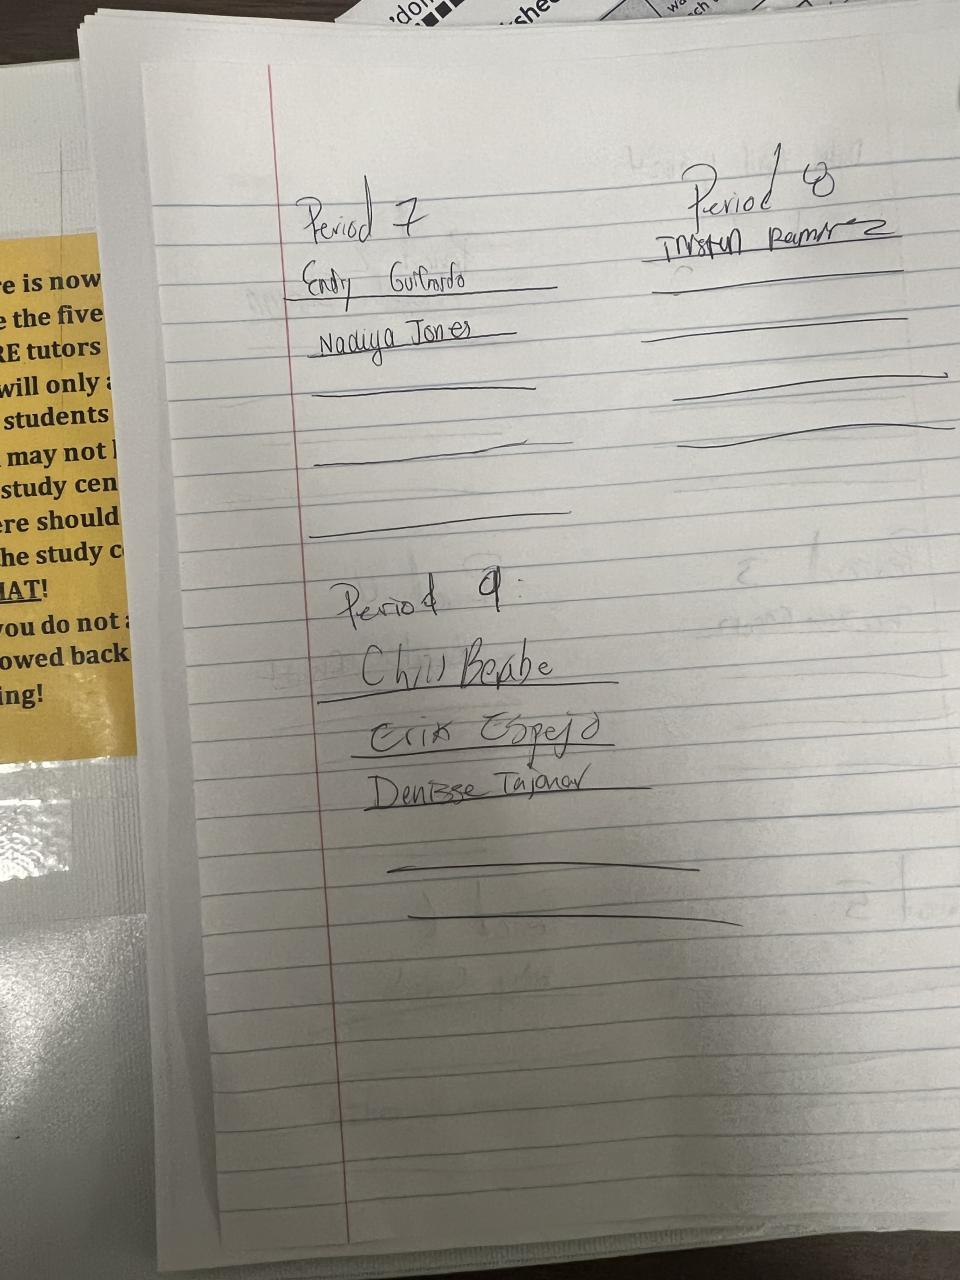 'do
shee
Period 7
Endy
Nadiya Jones
Period 8
Tristen Ramirez
Period 9:
Chris
Erik Espejo
Denisse
re is now
e the five
RE tutors
will only
students
may not
study cen
ere should
he study c
HAT!
you do not
owed back
ing!